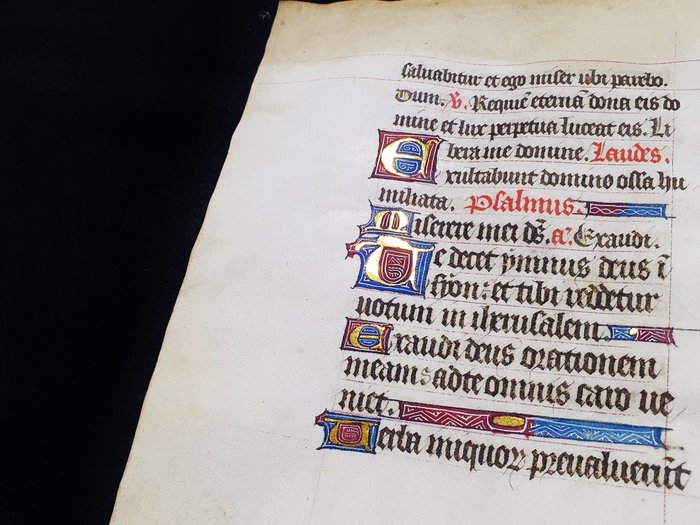 saluabitur et ego miser ubi parebo.
Dum. V̸. Requiē eternā dona eis do
mine et lux perpetua luceat eis. Li
bera me domine. Laudes.
Exultabunt domino ossa hu
miliata. Psalmus.
Miserere mei dš. a͞. Exaudi.
Te decet ymnus deus ī
syon: et tibi reddetur
uotum in iherusalem.
Exaudi deus orationem
meam: ad te omnis caro ue
niet.
Uerba iniquoꝝ preualuerūt